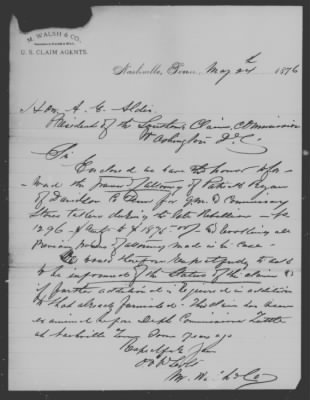 M. WALSH & CO.
U. S. CLAIM AGENTS.
Nashville, Tenn., May 24th 1876
Hon. A. O. Aldis
President of the Southern Claims Commission
Washington D.C.
Sir
Enclosed we have the honor to for-
ward the Power of Attorney of Patrick
of Davidson Co Tenn for Qm & Commissary
Stores taken during the late Rebellion - No
1296 Amt $ 1875 revoking all
previous powers of attorney made in the Case
We would therefore respectfully to ask
to be informed of the Status of the claim &
if further additional is required in addition
to that already furnished. This claim has been
examined before Commissioner Tuttle
at Nashville Tenn some years ago
Respectfully
Obt Svts
M. Walsh & Co